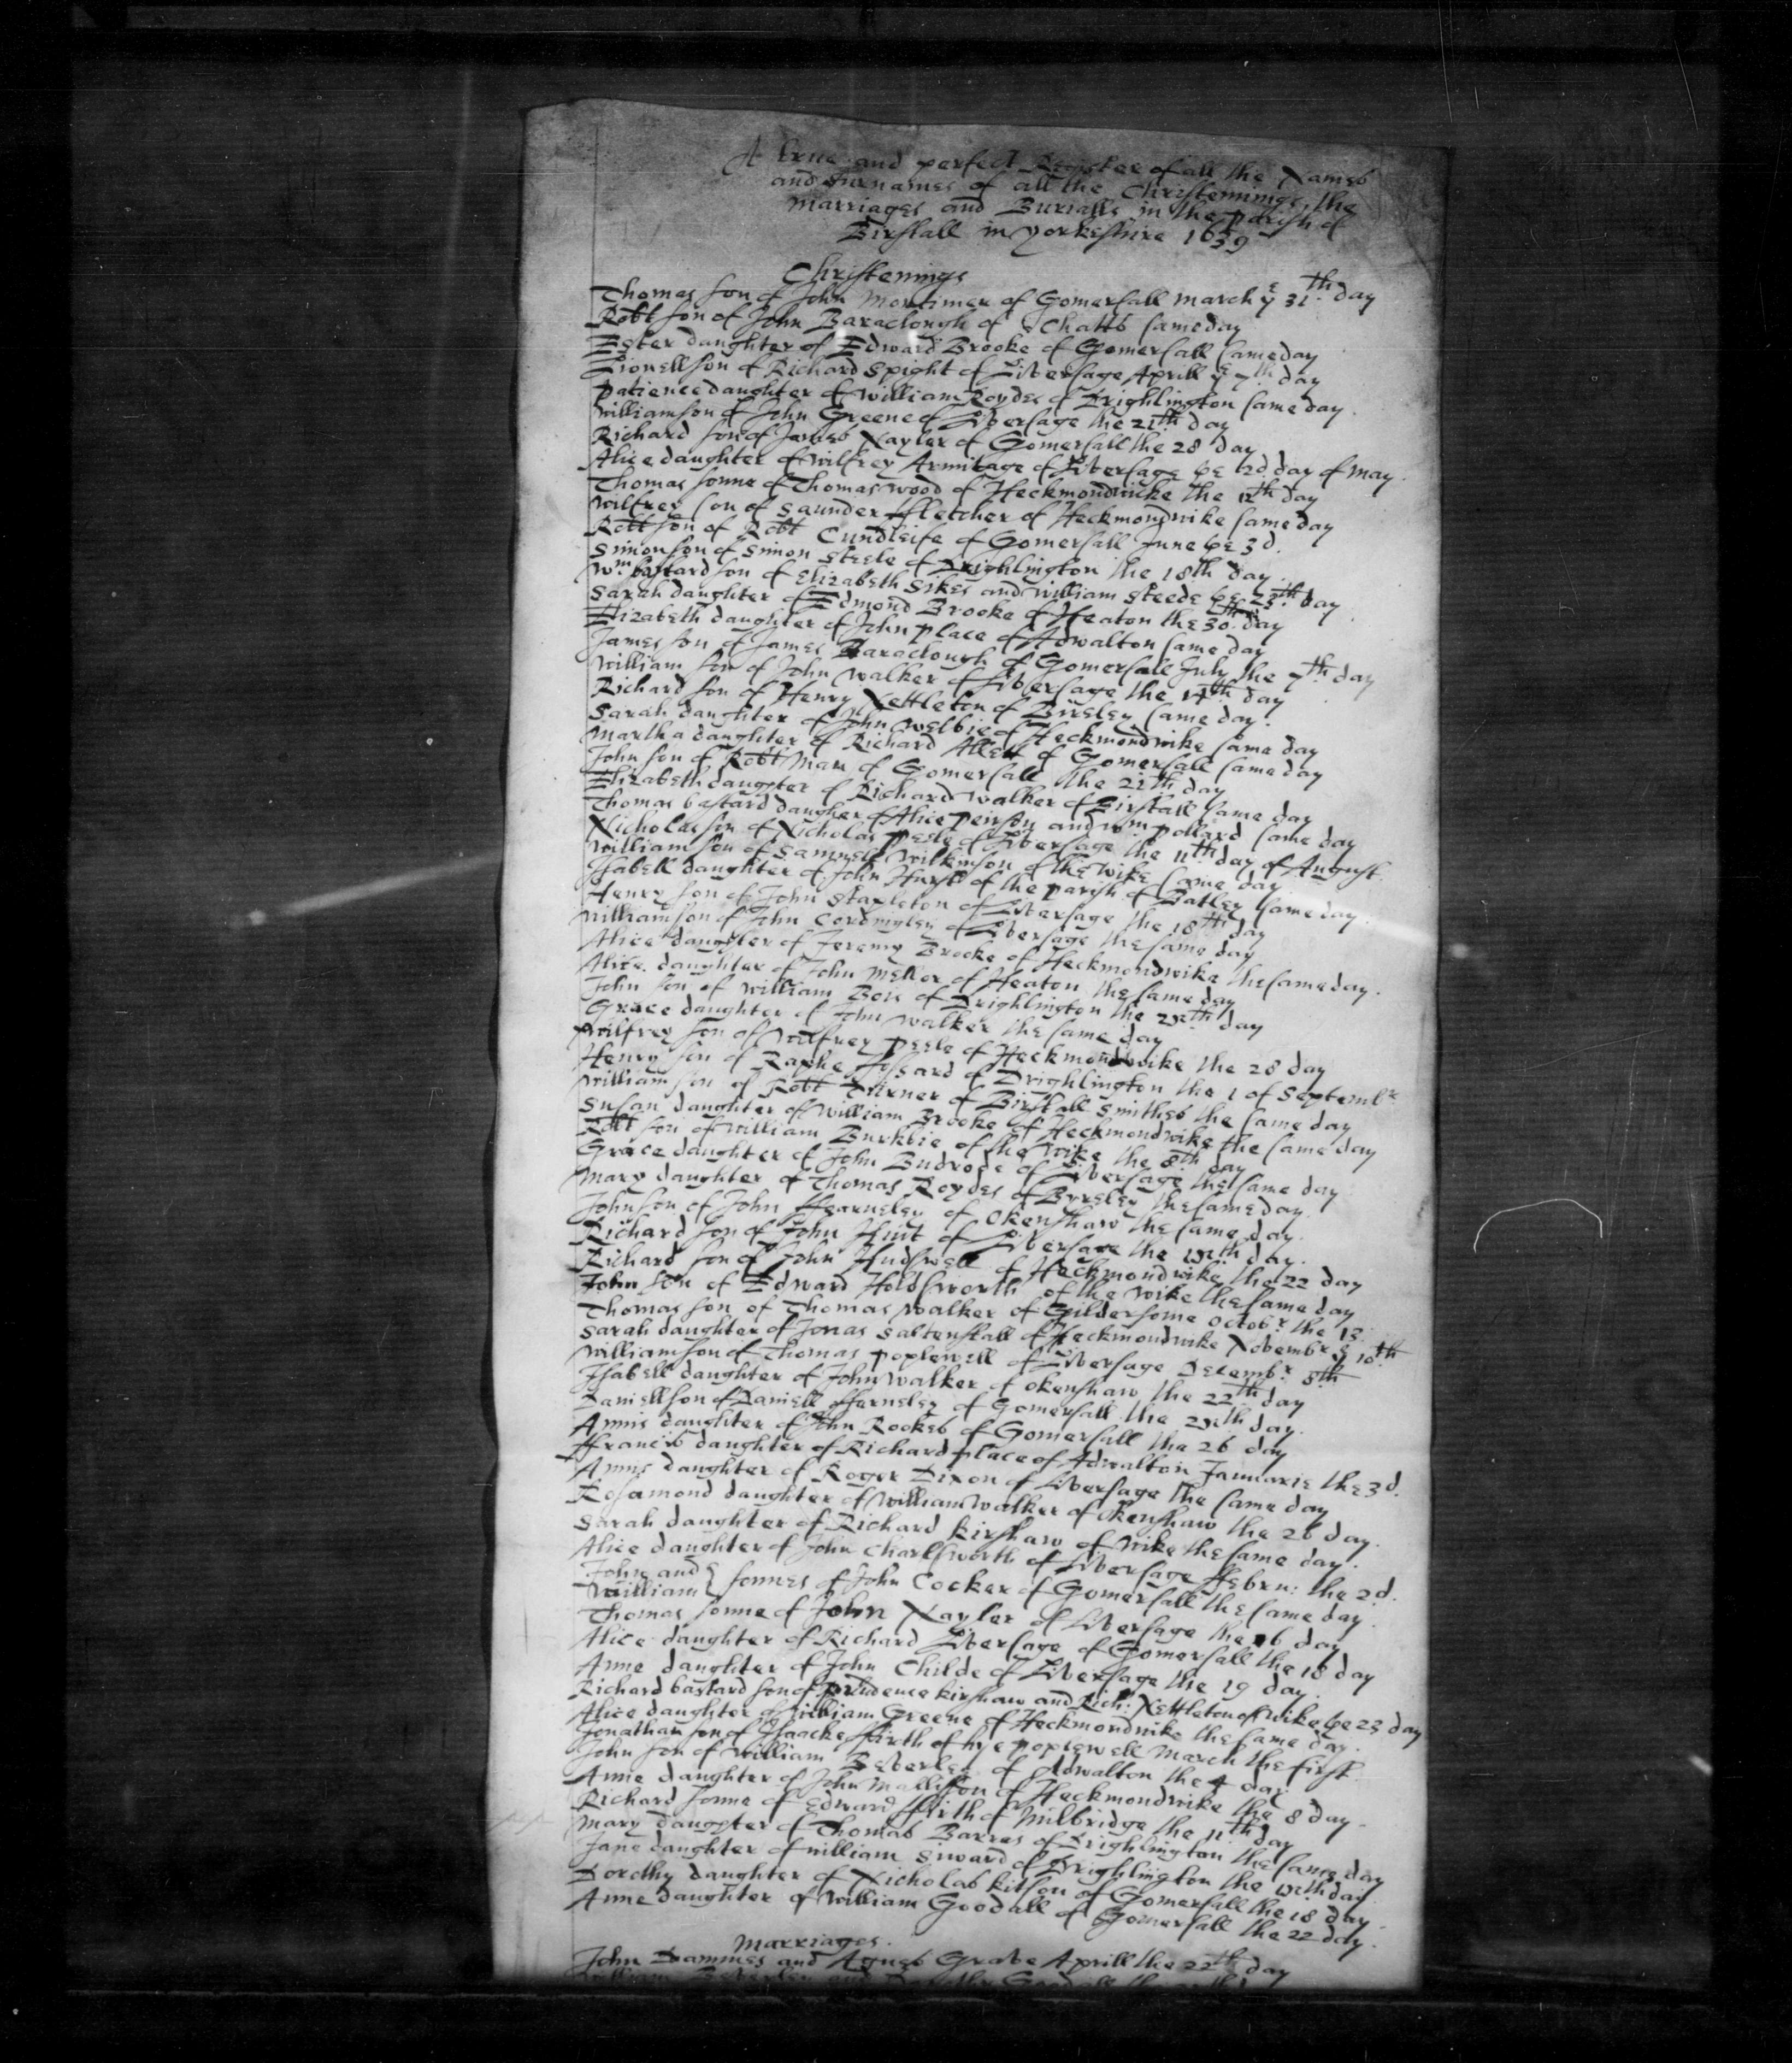 A true and perfect Register of all the Names
and surnames of all the Christenings, the
marriages and Burialls in the parish of
Birstall in yorkeshire 1639
Christenings
Thomas son of John Mortimer of Gomersall march ye 31th day
Robt son of John Baraclough of Chatts same day
Ester daughter of Edward Brooke of Gomersall same day
Lionell son of Richard Spight of Liversage Aprill ye 7th day
Patience daughter of William Roydes of Drighlington same day
William son of John Greene of Liversage the 21th day
Richard son of James Nayler of Gomersall the 28 day
Alice daughter of Wilfrey Armitage of Liversage ye 2d day of may
Thomas sonne of Thomas Wood of Heckmondwike the 12th day
Wilfrey son of Saunder ffletcher of Heckmondwike same day
Robt son of Robt Cundleife of Gomersall June ye 3d
Simon son of Simon Steele of Drighlington the 18th day
Wm bastard son of Elizabeth Sikes and William Steede ye 23th day
Sarah daughter of Edmond Brooke of Heaton the 30th day
Elizabeth daughter of John place of Adwalton same day
James son of James Baraclough of Gomersall July the 7th day
William son of John Walker of Liversage the 14th day
Richard son of Henry Nettleton of Birsley same day
Sarah daughter of John Welbie of Heckmondwike same day
Martha daughter of Richard Allen of Gomersall same day
John son of Robt Man of Gomersall the 21th day
Elizabeth daughter of Richard Walker of Birstall same day
Thomas bastard daugher of Alice peirson and wm pollard same day
Nicholas son of Nicholas peele of Liversage the 11th day of August
William son of Samuell Wilkinson of the Wike same day
Isabell daughter of John Hurst of the parish of Batley same day
Henry son of John Stapleton of Liversage the 18th day
William son of John Cordingley of Liversage the same day
Alice daughter of Jeremy Brooke of Heckmondwike the same day
Alice daughter of John Mellor of Heaton the same day
John son of William Bois of Drighlington the 25th day
Grace daughter of John Walker the same day
Wilfrey son of Wilfrey peele of Heckmondwike the 28 day
Henry son of Raphe ffossard of Drighlington the 1 of Septembr
William son of Robt Turner of Birstall Smithes the same day
Susan daughter of William Brooke of Heckmondwike the same day
Robt son of William Burkbie of the Wike the 8th day
Grace daughter of John Budrode of Liversage the same day
Mary daughter of Thomas Roydes of Byrsley the same day
John son of John ffearnsley of Okenshaw the same day
Richard son of John Hurst of Liversage the 15th day
Richard son of John Hudswell of Heckmondwike the 22 day
John son of Edward Holdsworth of the Wike the same day
Thomas son of Thomas Walker of Gildersome Octobr the 13
Sarah daughter of Jonas Saltenstall of Heckmondwike Novembr ye 10th
William son of Thomas poplewell of Liversage Decembr 8th
Isabell daughter of John Walker of Okenshaw the 22th day
Daniell son of Daniell ffernsley of Gomersall the 25th day
Annis daughter of John Rookes of Gomersall the 26 day
ffrancis daughter of Richard place of Adwalton Januarie the 3d
Annis daughter of Roger Dixon of Liversage the same day
Rosamond daughter of William Walker of Okenshaw the 26 day
Sarah daughter of Richard kirshaw of Wike the same day
Alice daughter of John Charlsworth of Liversage ffebru: the 2d
John and
William } sonnes of John Cocker of Gomersall the same day
Thomas sonne of John Nayler of Liversage the 16 day
Alice daughter of Richard Liversage of Gomersall the 18 day
Anne daughter of John Childe of Liversage the 19 day
Richard bastard son of prudence kirshaw and Rich: Nettleton of Wike ye 23 day
Alice daughter of William Greene of Heckmondwike the same day
Jonathan son of Isaacke ffirth of nye poplewell March the first
John son of William Beverley of Adwalton the 4 day
Anne daughter of John Mallison of Heckmondwike the 8 day
Richard sonne of Edward ffirth of Milbridge the 11th day
Mary daughter of Thomas Barras of Drighlington the same day
Jane daughter of William Siward of Drighlington the 15th day
Dorothy daughter of Nicholas kitson of Gomersall the 18 day
Anne daughter of William Goodall of Gomersall the 22 day
Marriages
John Dammes and Agnes Grave Aprill the 22th day
William Beverley and Dorothy Goodall the